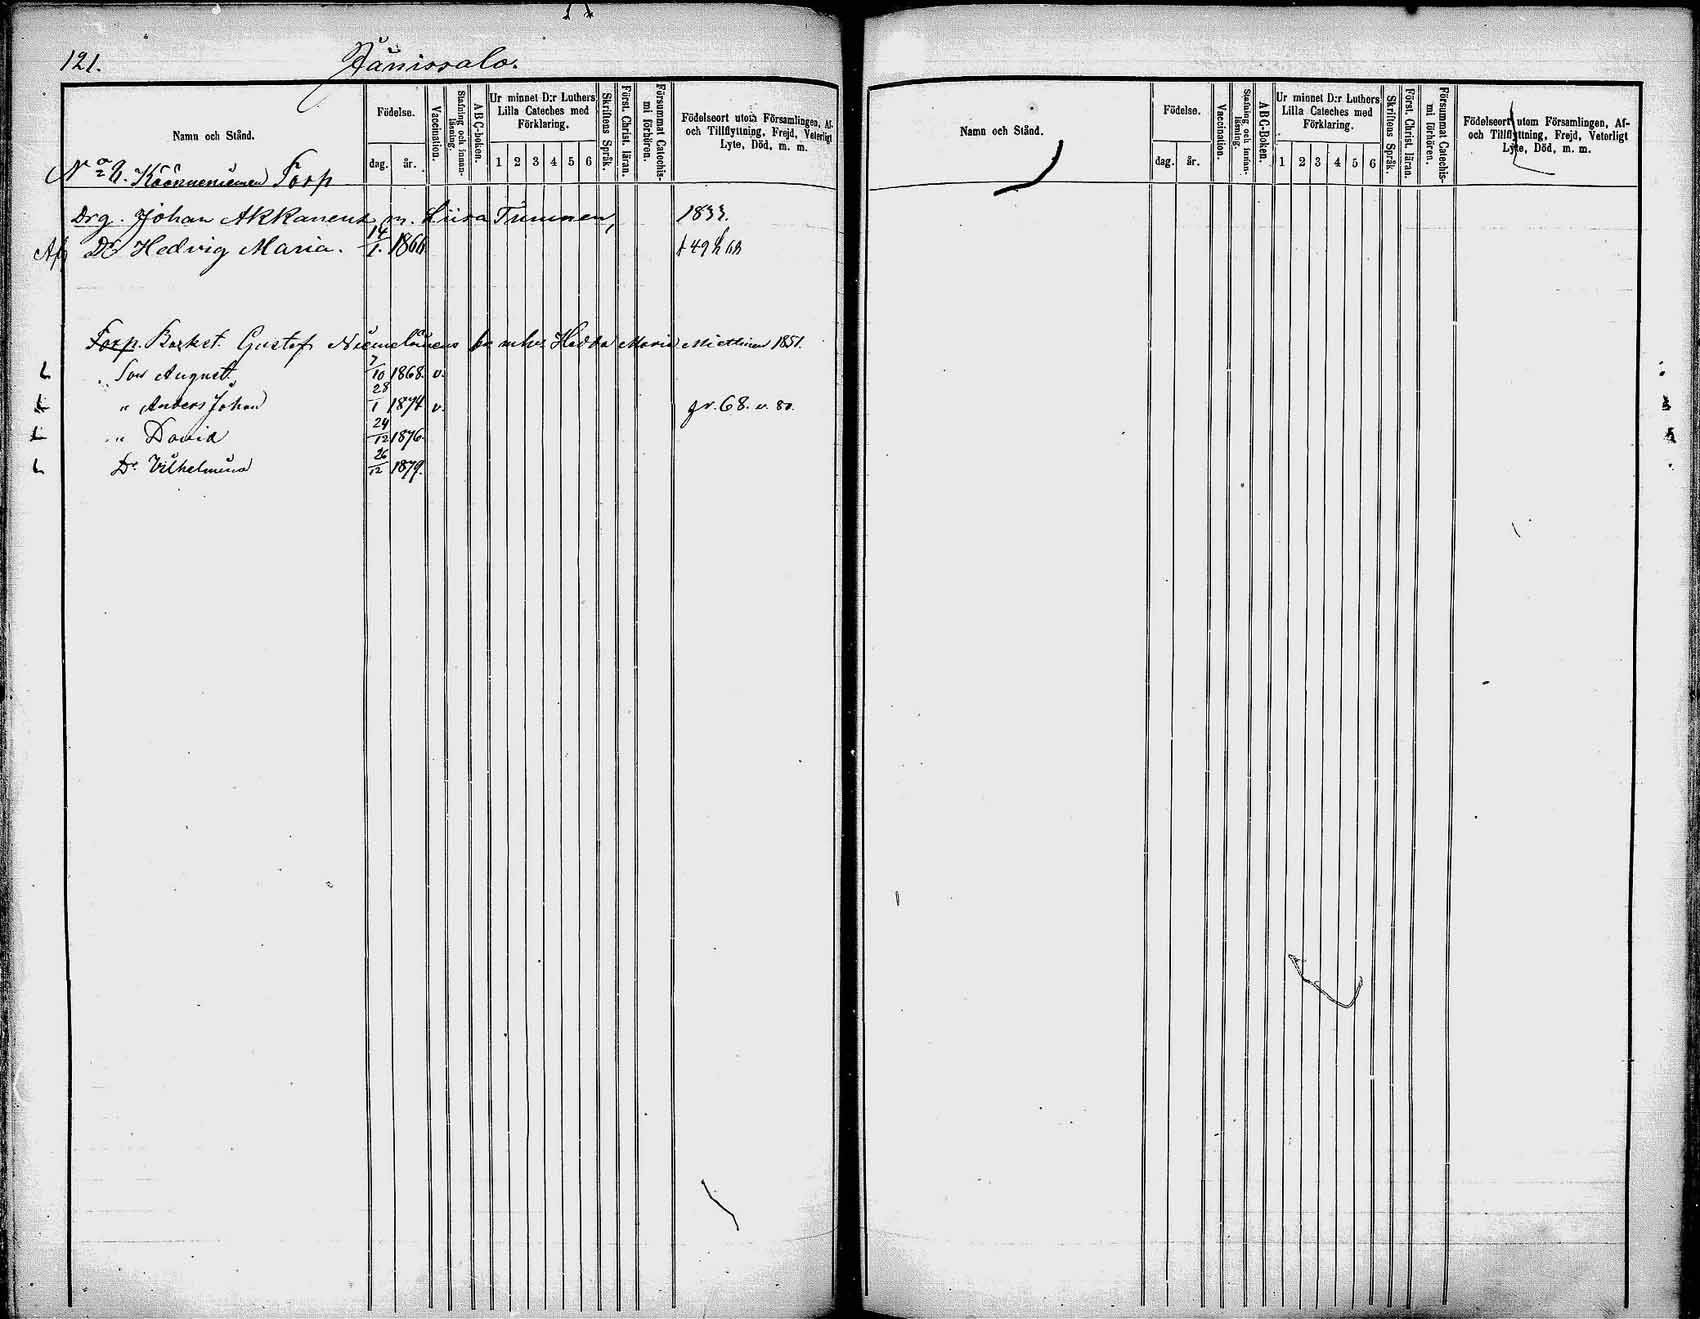 121. Jänissalo.
Namn och Stånd.
Födelse.
dag. år.
Vaccination.
Stafning och innan-läsning.
A B C-boken.
Ur minnet D:r Luthers Lilla Cateches med Förklaring.
1 2 3 4 5 6
Skriftens Språk.
Först. Christ. läran.
Försummat Catechis-mi förhören.
Födelseort utom Församlingen, Af- och Tillflyttning, Frejd, Veterligt Lyte, Död, m. m.
Torp
Drg. Johan Akkanens m. Liisa Timonen, 1833.
Dr Hedvig Maria. 14/1. 1866
Torp. Gustaf Hedda Maria Miettinen 1851.
" Son August. 7/10 1868. v.
" Anders Johan 28/1 1874 v. fr. 68. v. 80.
" David 24/12 1876.
Dr Vilhelmina 26/12 1879.
Namn och Stånd.
Födelse.
dag. år.
Vaccination.
Stafning och innan-läsning.
A B C-boken.
Ur minnet D:r Luthers Lilla Cateches med Förklaring.
1 2 3 4 5 6
Skriftens Språk.
Först. Christ. läran.
Försummat Catechis-mi förhören.
Födelseort utom Församlingen, Af- och Tillflyttning, Frejd, Veterligt Lyte, Död, m. m.